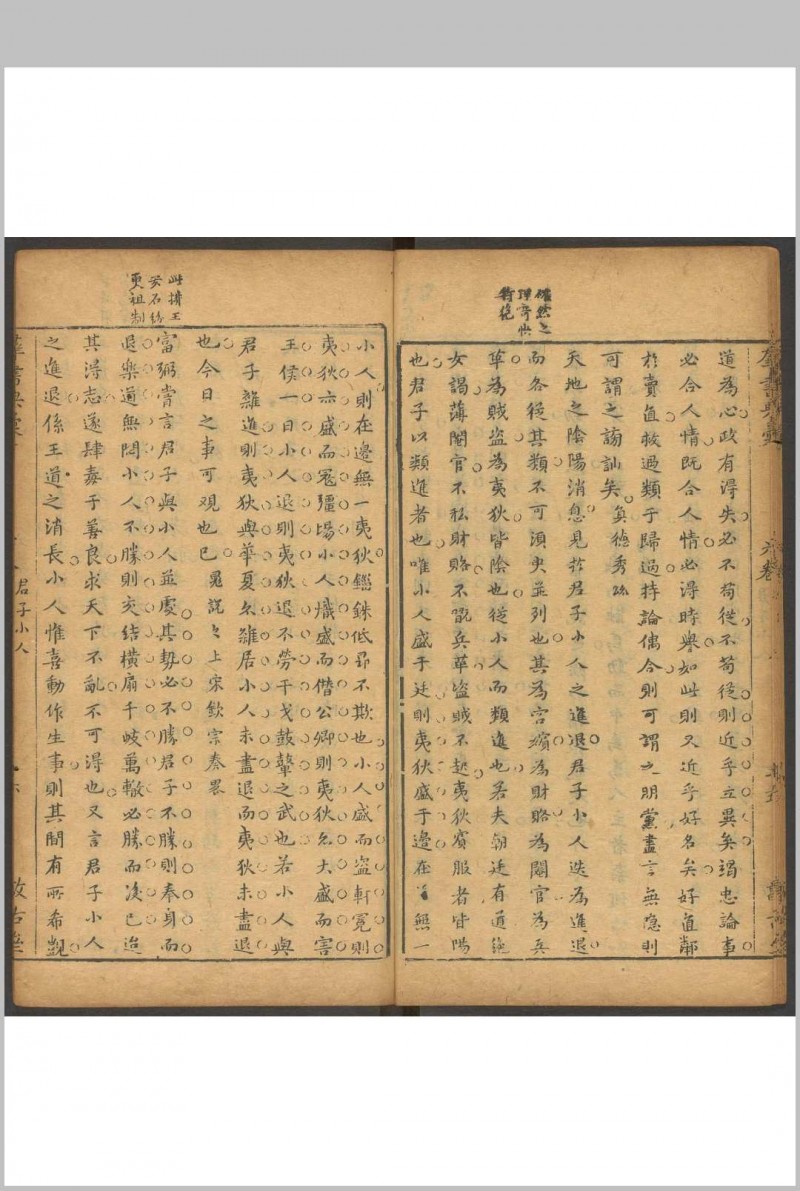 確然之
理奇快
道為心政有得失必不苟從不苟從則近乎立異矣謁忠論事
必合人情既合人情必得時譽如此則又近乎好名矣好直鄰
於賣直救過類于歸過持論偶合則可謂之明黨盡言無隱則
可謂之謗訕矣真德秀疏
天地之陰陽消息見於君子小人之進退君子小人迭為進退
而各從其類不可須臾並列也其為宮嬪為財賂為閹官為兵
革為賊盜為夷狄皆陰也從小人而類進也若夫朝廷有道絶
女謁薄閹官不私財賂不翫兵革盜賊不起夷狄賓服者皆陽
也君子以類進者也唯小人盛于廷則夷狄盛于邊在無一
此擠王
安石紛
更祖制
小人則在邊無一夷狄鑑銖低昂不欺也小人盛而盜軒冕則
夷狄亦盛而寇疆場小人熾盛而僭公卿則夷狄乆大盛而害
王侯一日小人退則夷狄退不勞干戈鼓鼙之武也若小人與
君子雜進則夷狄與華夏乆雜居小人未盡退而夷狄未盡退
也今日之事可观也已 晁說之上宋欽宗奏畧
富弼嘗言君子與小人並處其勢必不勝君子不勝則奉身而
退樂道無悶小人不勝則交結橫扇千岐萬轍必勝而後已迨
其得志遂肆毒于善良求天下不亂不可得也又言君子小人
之進退係王道之消長小人惟喜動作生事則其間有所希覬
君子小人